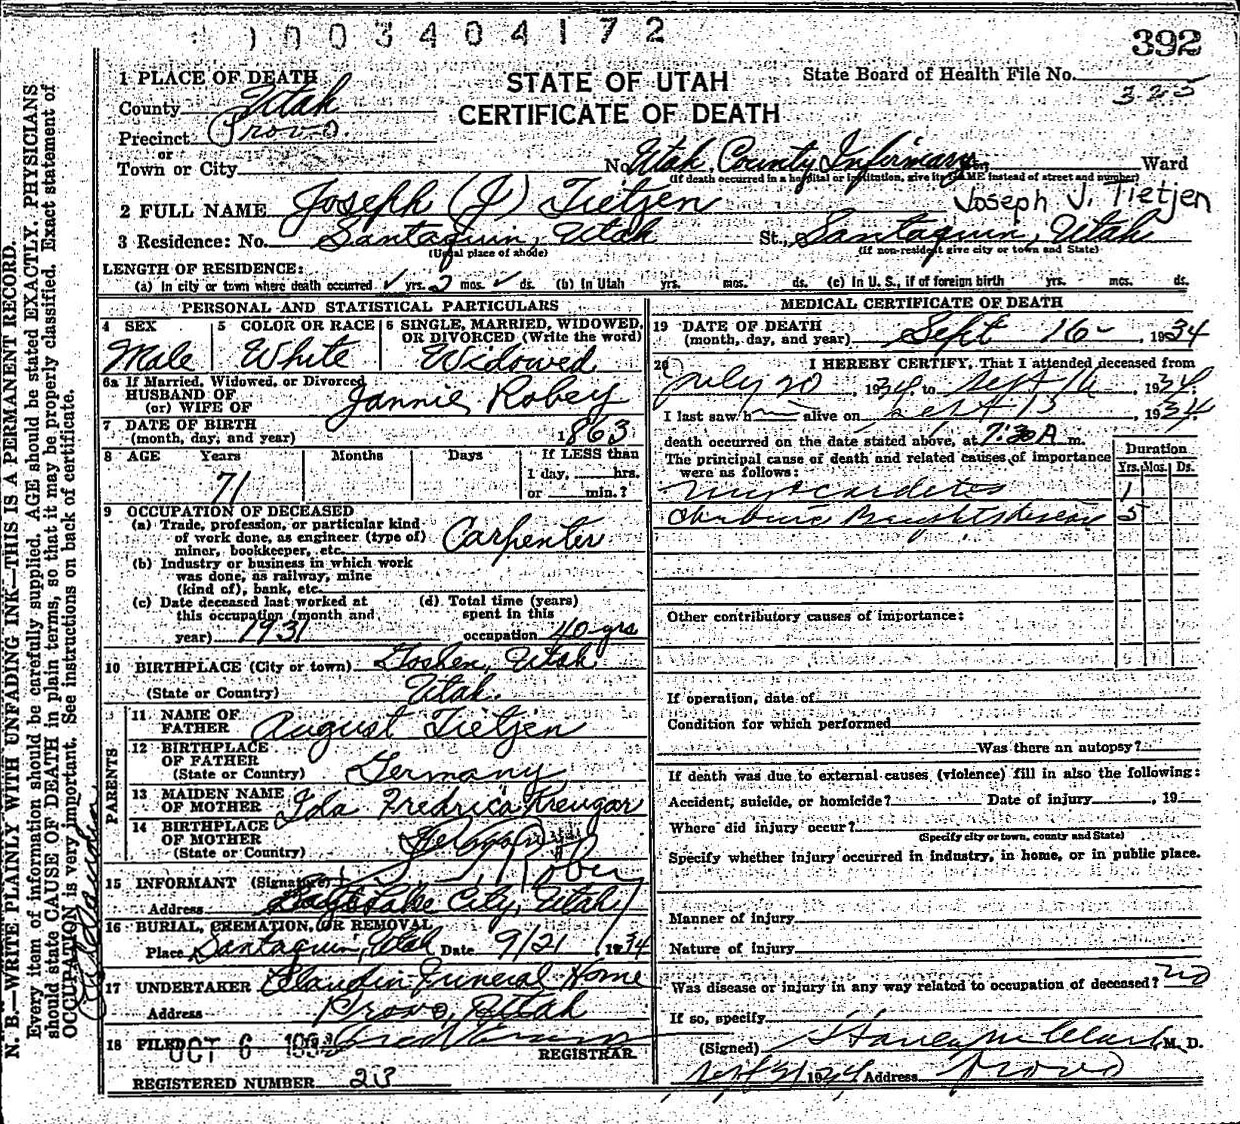 1003404172
392
STATE OF UTAH
CERTIFICATE OF DEATH
State Board of Health File No.
325
1 PLACE OF DEATH
County Utah
Precinct Provo
or
Town or City
No. Utah County Infirmary St., Ward
(If death occurred in a hospital or institution, give its NAME instead of street and number)
2 FULL NAME Joseph (J) Tietjen Joseph J. Tietjen
3 Residence: No. Santaquin, Utah St., Santaquin, Utah
(Usual place of abode) (If non-resident give city or town and State)
LENGTH OF RESIDENCE:
(a) In city or town where death occurred ✓ yrs. 2 mos. ✓ ds. (b) In Utah yrs. mos. ds. (c) In U. S., if of foreign birth yrs. mos. ds.
PERSONAL AND STATISTICAL PARTICULARS
4 SEX
Male
5 COLOR OR RACE
White
6 SINGLE, MARRIED, WIDOWED, OR DIVORCED (Write the word)
Widowed
6a If Married, Widowed, or Divorced
HUSBAND OF
(or) WIFE OF Jannie Robey
7 DATE OF BIRTH
(month, day, and year) 1863
8 AGE Years Months Days If LESS than
71 1 day, hrs.
or min.?
9 OCCUPATION OF DECEASED
(a) Trade, profession, or particular kind
of work done, as engineer (type of)
miner, bookkeeper, etc. Carpenter
(b) Industry or business in which work
was done, as railway, mine
(kind of), bank, etc.
(c) Date deceased last worked at
this occupation (month and
year) 1931
(d) Total time (years)
spent in this
occupation 40 yrs
10 BIRTHPLACE (City or town) Goshen, Utah
(State or Country) Utah.
PARENTS
11 NAME OF
FATHER August Tietjen
12 BIRTHPLACE
OF FATHER
(State or Country) Germany
13 MAIDEN NAME
OF MOTHER Ida Fredrica Kreugar
14 BIRTHPLACE
OF MOTHER
(State or Country) Germany
15 INFORMANT (Signature)
Address Salt Lake City, Utah
16 BURIAL, CREMATION, OR REMOVAL
Place Santaquin, Utah Date 9/21 1934
17 UNDERTAKER Claudin Funeral Home
Address Provo, Utah
18 FILED OCT 6 1934
REGISTRAR
REGISTERED NUMBER 23
MEDICAL CERTIFICATE OF DEATH
19 DATE OF DEATH
(month, day, and year) Sept 16 - , 1934
20 I HEREBY CERTIFY, That I attended deceased from
July 20, 1934, to Sept 16, 1934.
I last saw h alive on Sept 15, 1934.
death occurred on the date stated above, at 7:30 A m.
The principal cause of death and related causes of importance
were as follows:
Duration
Yrs. Mos. Ds.
Myocarditis 1
Chronic Brights disease 5
Other contributory causes of importance:
If operation, date of
Condition for which performed
Was there an autopsy?
If death was due to external causes (violence) fill in also the following:
Accident, suicide, or homicide? Date of injury , 19
Where did injury occur?
(Specify city or town, county and State)
Specify whether injury occurred in industry, in home, or in public place.
Manner of injury
Nature of injury
Was disease or injury in any way related to occupation of deceased? no
If so, specify
(Signed) M. D.
1934 Address Provo
N. B.—WRITE PLAINLY WITH UNFADING INK—THIS IS A PERMANENT RECORD.
Every item of information should be carefully supplied. AGE should be stated EXACTLY. PHYSICIANS
should state CAUSE OF DEATH in plain terms, so that it may be properly classified. Exact statement of
OCCUPATION is very important. See instructions on back of certificate.